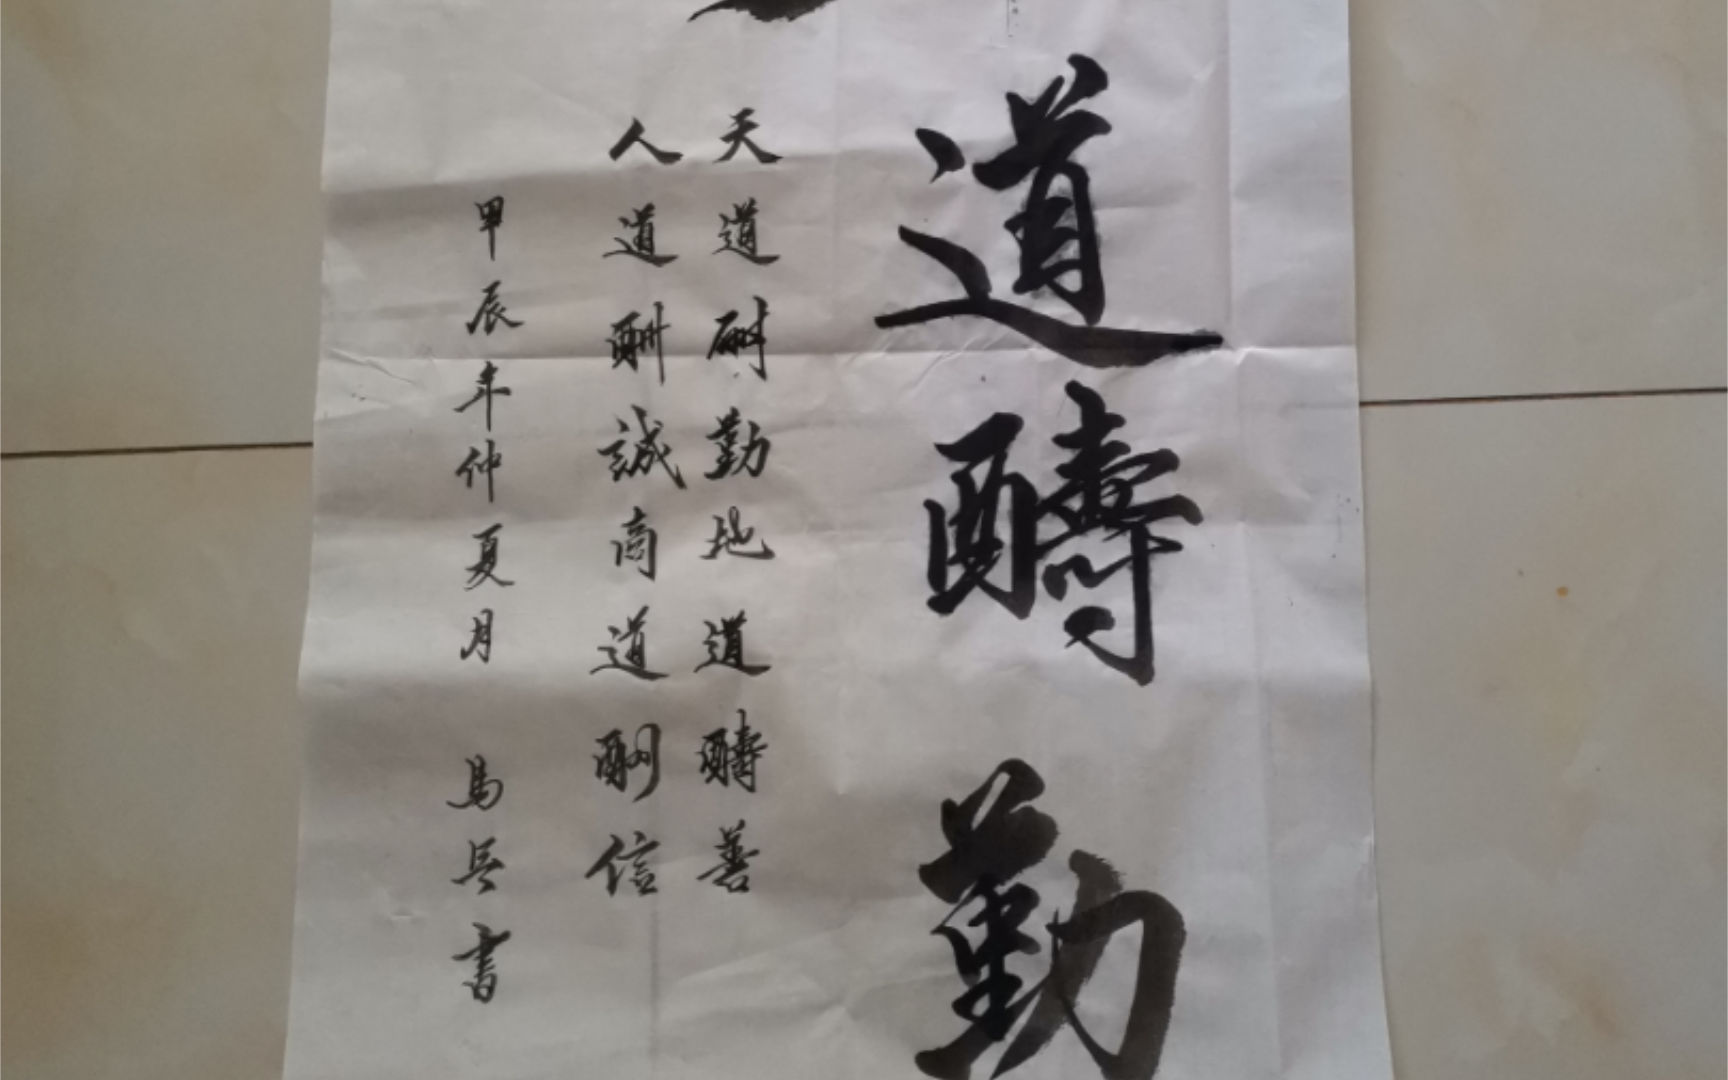 道酬勤
天道酬勤地道酬善
人道酬誠商道酬信
甲辰年仲夏月 馬兵書